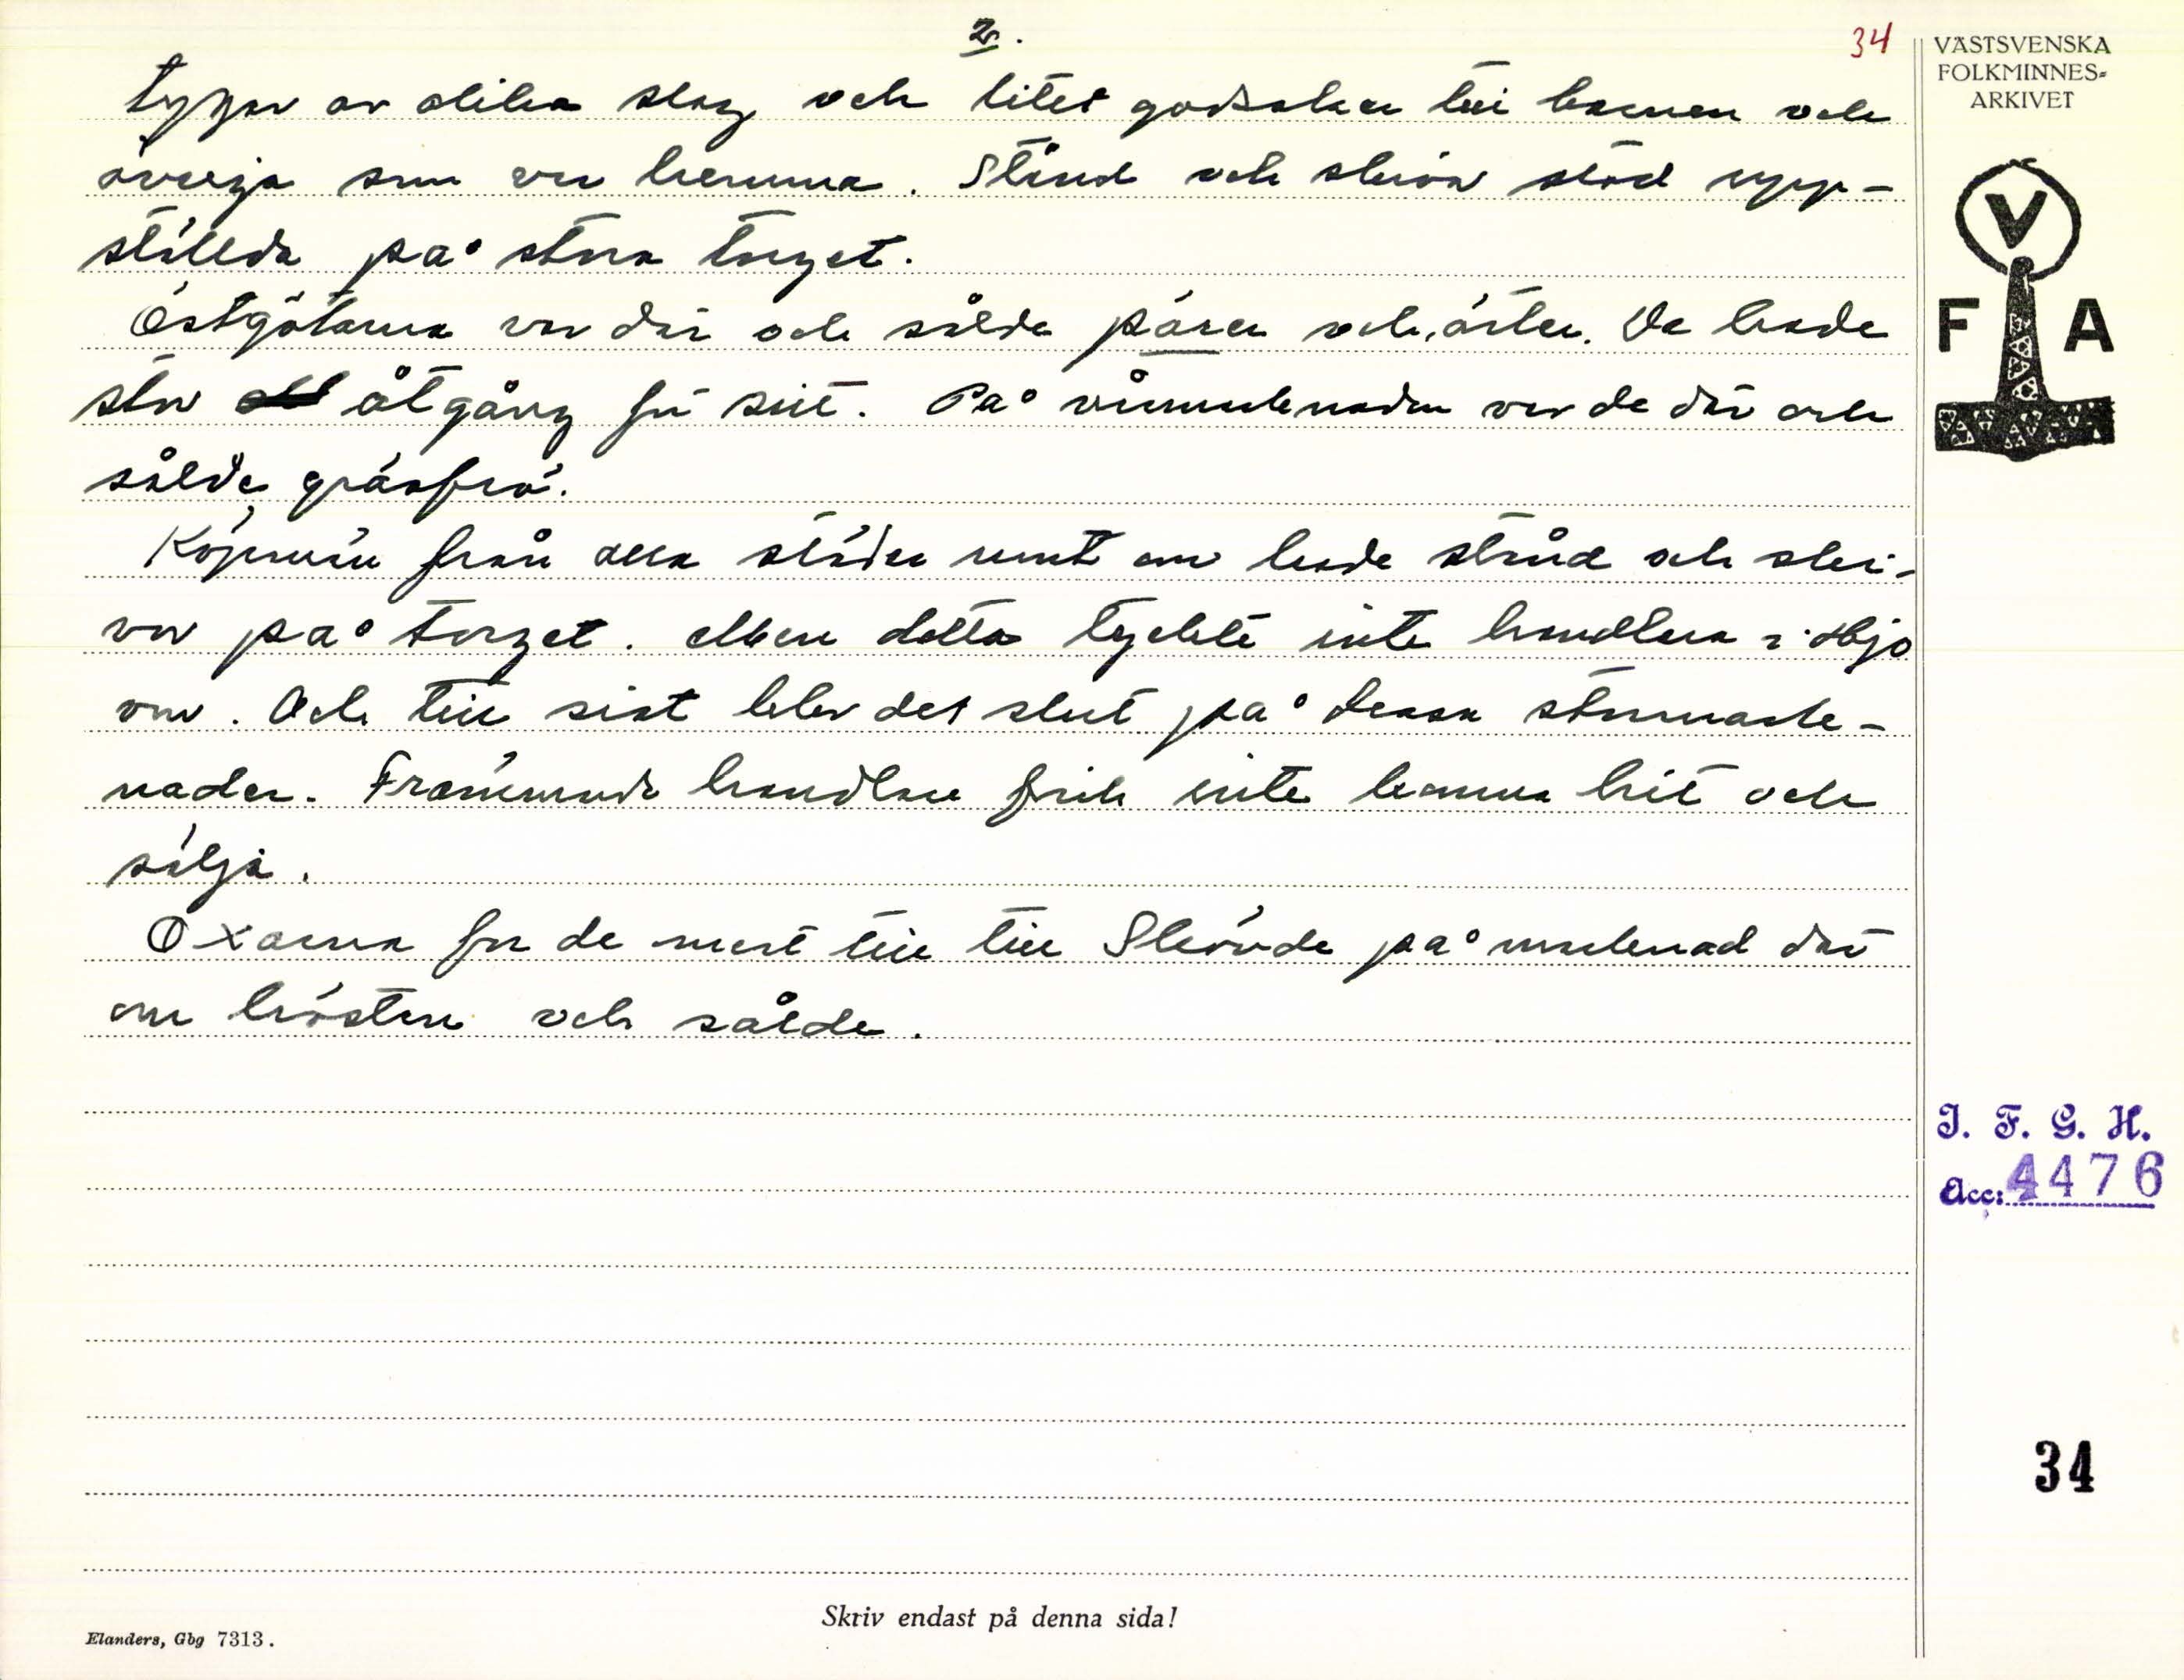 2.
34
tyger av olika slag och litet godsaker till barnen och
övriga som var hemma. Stånd och skivor stod upp-
ställda på stora torget.
Östgötarna var där och sålde pärer och ärter. De hade
stor åtgång för sitt. På vårmarknaden var de där och
sålde gräsfrö.
Köpmän från alla städer runt om hade stånd och ski-
vor på torget. Men detta tyckte inte handlarna i Hjo
om. Och till sist blev det slut på dessa stormark-
nader. Främmande handlare fick inte komma hit och
sälja.
Oxarna for de mest till till Skövde på marknad där
om hösten och sålde.
VÄSTSVENSKA
FOLKMINNES-
ARKIVET
V
F A
I. F. G. H.
Acc: 4476
34
Skriv endast på denna sida!
Elanders, Gbg 7313.